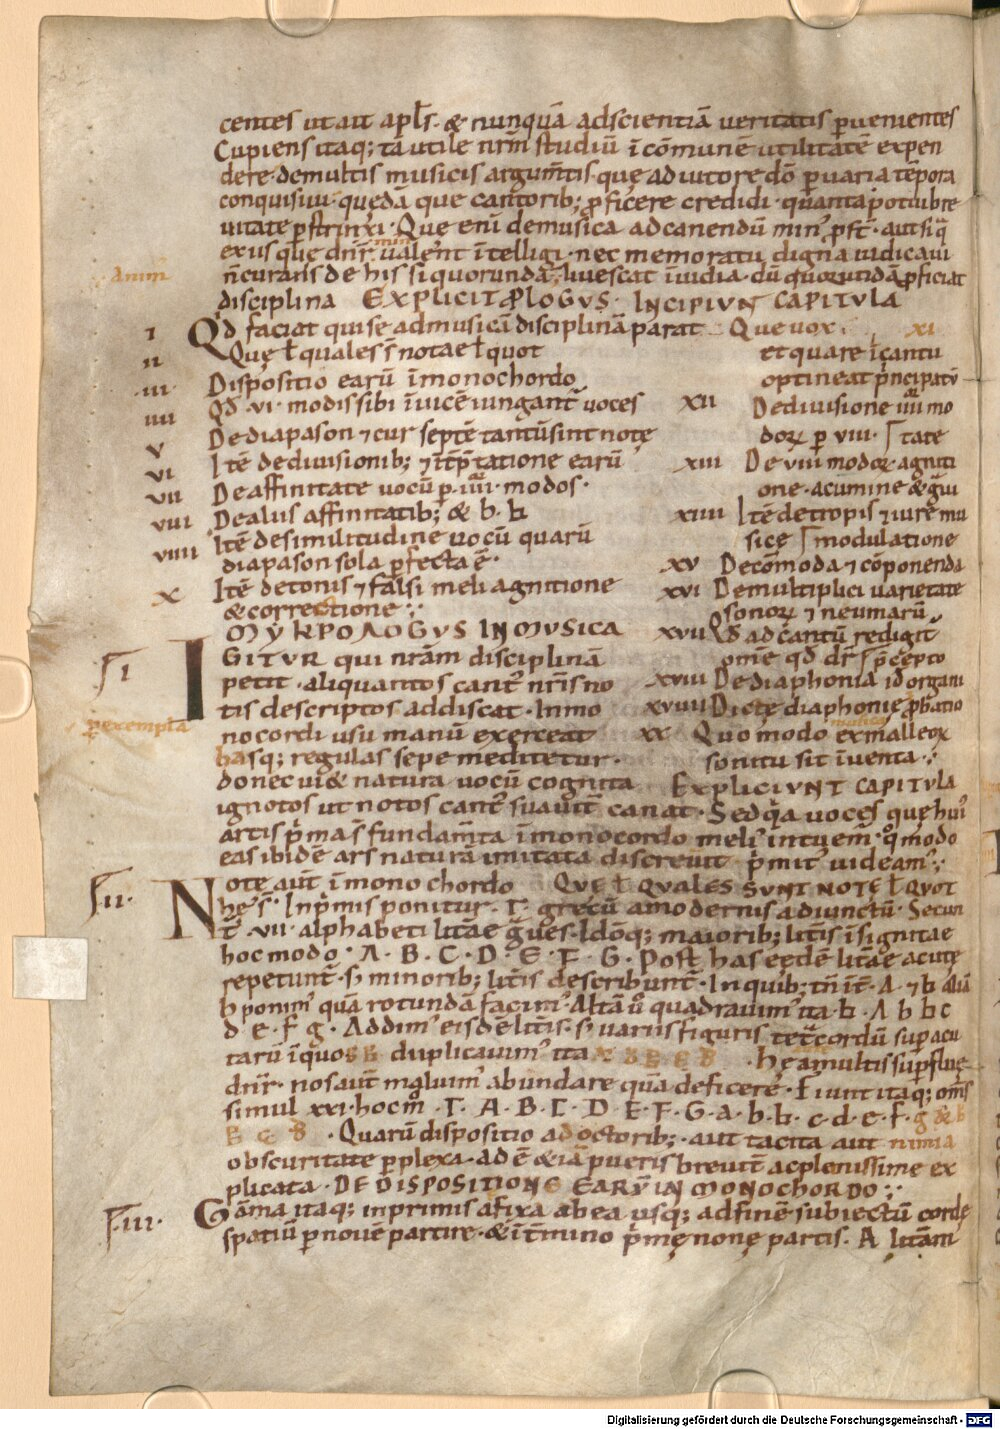 centes ut ait apls. & nunquā adscientiā ueritatis puenientes
Cupiens itaq; tā utile nrm̄ studiū ī cōmunē utilitatē expen
dere. demultis musicis argum̄tis. quę adiutore dō puaria tēpora
conquisiui. quędā que cantorib; pficere credidi. quanta potui bre
uitate pstrinxi. Que eni demusica adcanendū min' pst. aut siq̄
ex iis que dnr̄ ualent ītelligi. nec memoratu digna iudicaui
min'
Anim̄
n̄ curans de his si quorundā liuescat īuidia. dū quorundā pficiat
disciplina EXPLICIT PLOGUS. INCIPIUNT CAPITULA
I Qd faciat qui se admusicā disciplinā parat
II Quę ł quales s̄ notae ł quot
III Dispositio earū ī monochordo
IIII Qd .vi. modis sibi īuicē iungant̄ uoces
V De diapason ⁊ cur septē tantū sint notę
VI Itē de diuisionib; ⁊ īt̄ptatione earū
VII De affinitate uocū p. IIII. modos.
VIII De aliis affinitatib; & b. ♮
VIIII Itē de similitudine uocū quarū
diapason sola pfecta ē.
X Itē de tonis ⁊ falsi meli agnitione
& correctione
Que uox. XI
et quare ī cantu
optineat pncipatū
XII De diuisione IIII mo
dorꝝ p VIII. tate
XIII De VIII modorꝝ agniti
one. acumine & gui
XIIII Itē de tropis ⁊ iure mu
sicę modulatione
XV De cōmoda ⁊ cōponenda
XVI De multiplici uarietate
sonorꝝ ⁊ neumarū
XVII Qd ad cantū redigit̄
om̄e qd dr̄ pcepto
XVIII De diaphonia id organi
XVIIII Dictę diaphonię pbatio
XX Quomodo ex malleorꝝ
sonitu sit īuenta
EXPLICIUNT CAPITULA
MYKROLOGUS IN MUSICA
F I
IGITUR qui nram̄ disciplinā
petit. aliquantos cant' nr̄is no
tis descriptos addiscat. Inmo
nocordi usu manū exerceat
p exempla
hasq; regulas sepe meditetur.
donec ui & natura uocū cognita
ignotos ut notos cant' suauit̄ canat. Sed q̄a uoces quę hui'
artis p̄ma s̄ fundam̄ta ī monocordo meli' intuem̄. qomodo
eas ibidē ars naturā imitata discreuit pmit' uideam̄
F II.
Note aut̄ ī monochordo QUE ł QUALES SUNT NOTE ł QUOT
he s̄. Inp̄mis ponitur. Γ. grecū amodernis adiunctū. Secun
t̄ .vii. alphabeti litāe gues. Idōq; maiorib; litīs īsignitae
hoc modo. A. B. C. D. E. F. G. Post has eędē litāe acutę
repetunt̄. S; minorib; litīs describunt̄. In quib; tn̄ īt̄. A. ⁊ ♮ aliā
b ponim' quā rotundā facim'. Altā ū quadrauim' ita ♮. A b ♮ c
d e. f g. Addim' eisdē litīs. s; variis figuris tetc̄ordū supacu
tarū ī quo
duplicauim' ita
hęamultis supfluę
dnr̄. nos aut̄ maluim' abundare quā deficere. Fiunt itaq; om̄s
simul xxi. hoc mo. Γ. A. B. C. D. E. F. G. a. b. ♮. c. d. e. f. g
. Quarū dispositio ad octorib; . aut tacita aut nimia
obscuritate pplexa. ad ē & iā pueris breuit̄ ac plenissime ex
plicata. DE DISPOSITIONE EARŪ IN MONOCHORDO
F. III.
Gāma itaq; inprimis afixa ab ea usq; ad finē subiectū cordę
spatiū p nouē partire. & ī tm̄ino p̄mę nonę partis. A litām
Digitalisierung gefördert durch die Deutsche Forschungsgemeinschaft - DFG